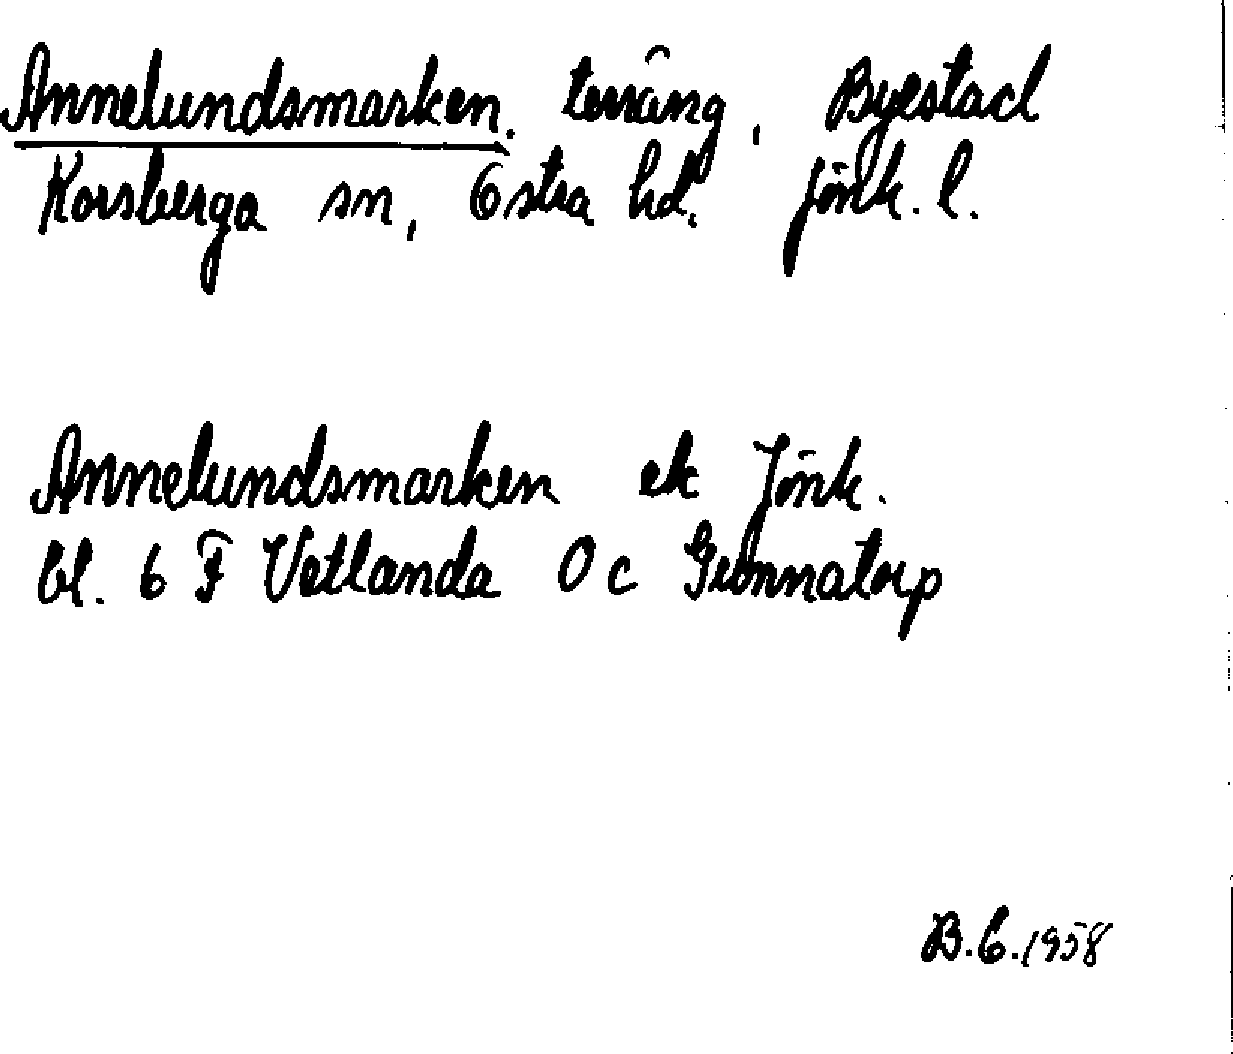 Annelundsmarken. terräng, Byestad
Korsberga sn, Östra hd. Jönk. l.
Annelundsmarken ek Jönk.
bl. 6 F Vetlanda 0 c Grönnatorp
B.E. 1958